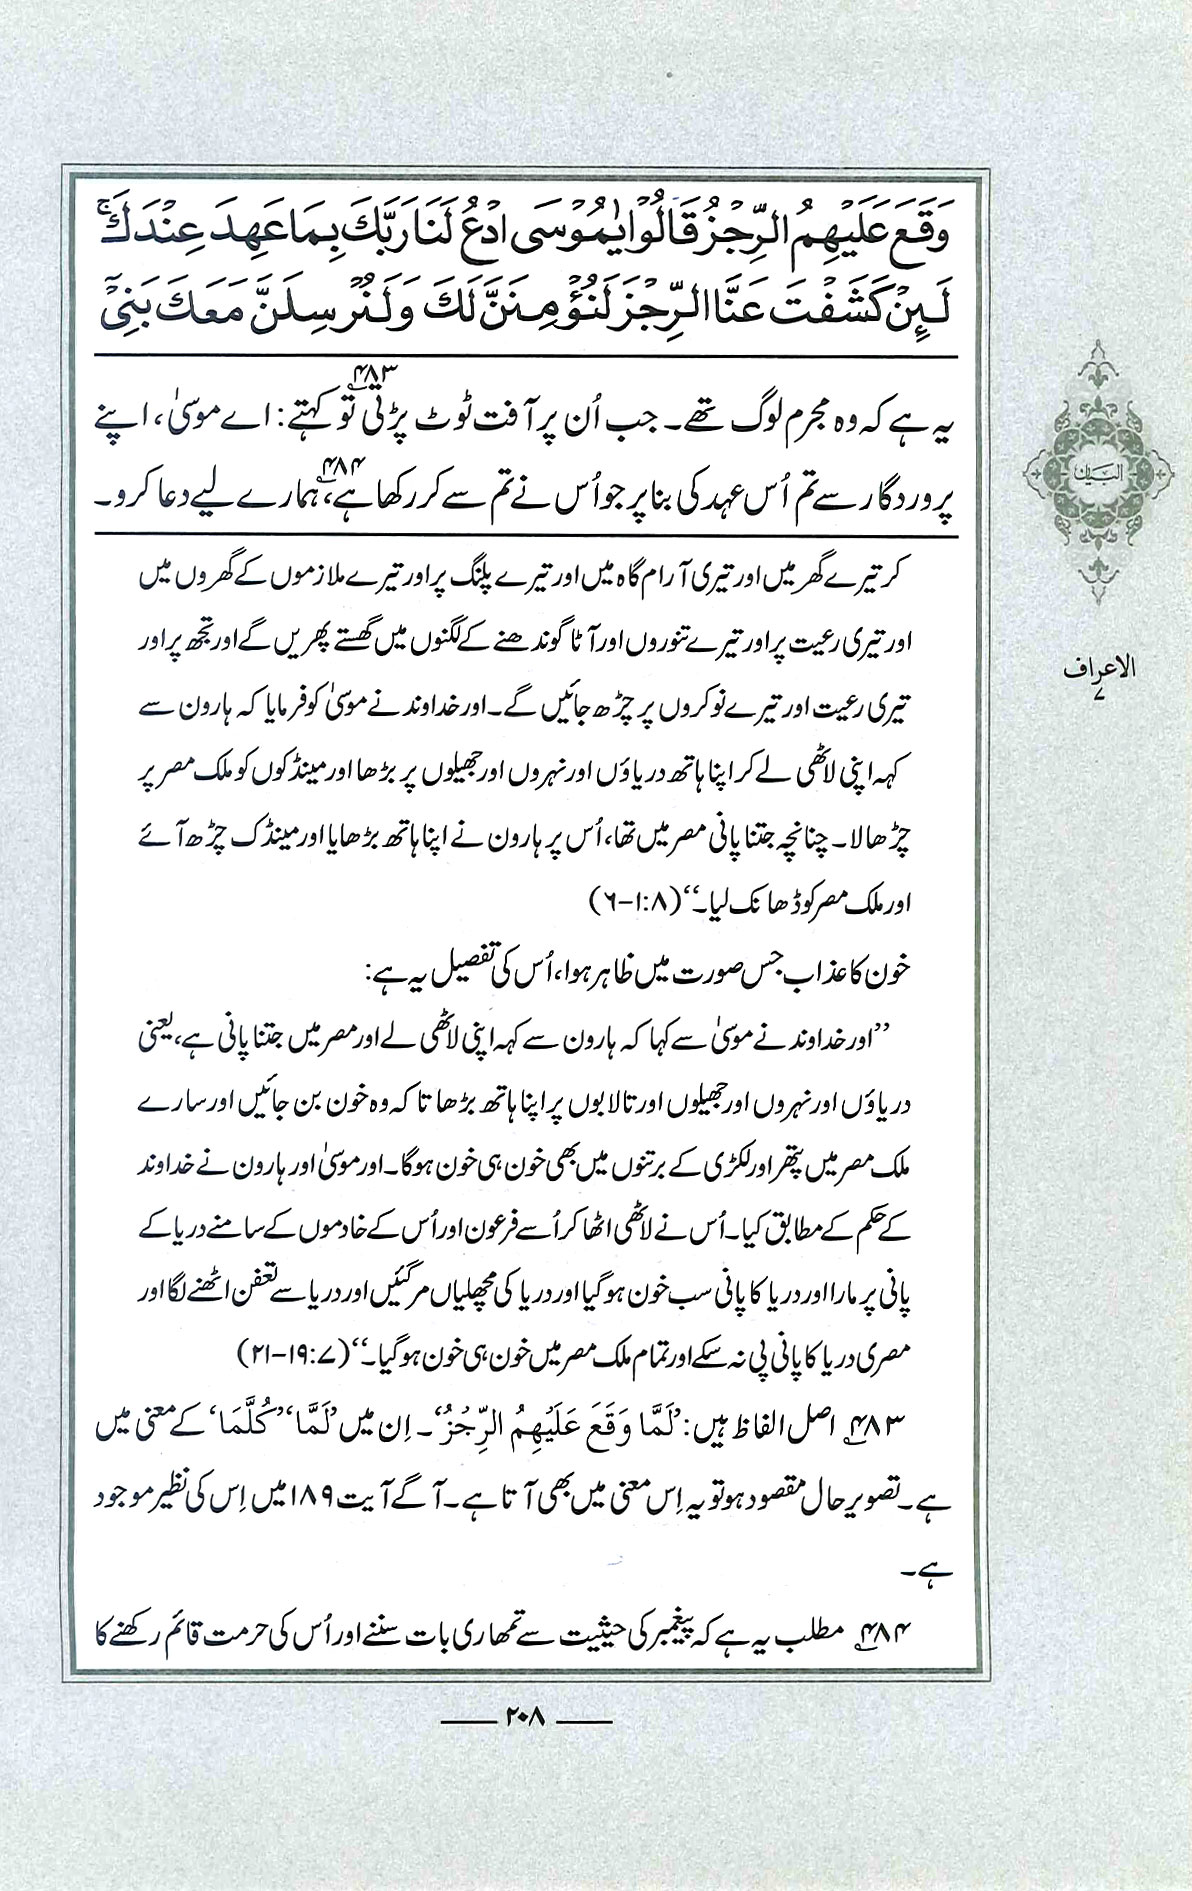 وَقَعَ عَلَيْهِمُ الرِّجْزُ قَالُوْا يٰمُوْسَى ادْعُ لَنَا رَبَّكَ بِمَا عَهِدَ عِنْدَكَ ۚ
لَئِنْ كَشَفْتَ عَنَّا الرِّجْزَ لَنُؤْمِنَنَّ لَكَ وَلَنُرْسِلَنَّ مَعَكَ بَنِیْٓ
یہ ہے کہ وہ مجرم لوگ تھے۔ جب اُن پر آفت ٹوٹ پڑتی تو ۴۸۳ کہتے: اے موسیٰ، اپنے
پروردگار سے تم اُس عہد کی بنا پر جو اُس نے تم سے کر رکھا ہے، ۴۸۴ ہمارے لیے دعا کرو۔
کر تیرے گھر میں اور تیری آرام گاہ میں اور تیرے پلنگ پر اور تیرے ملازموں کے گھروں میں
اور تیری رعیت پر اور تیرے تنوروں اور آٹا گوندھنے کے لگنوں میں گھستے پھریں گے اور تجھ پر اور
تیری رعیت اور تیرے نوکروں پر چڑھ جائیں گے۔ اور خداوند نے موسیٰ کو فرمایا کہ ہارون سے
کہہ اپنی لاٹھی لے کر اپنا ہاتھ دریاؤں اور نہروں اور جھیلوں پر بڑھا اور مینڈکوں کو ملک مصر پر
چڑھا لا۔ چنانچہ جتنا پانی مصر میں تھا، اُس پر ہارون نے اپنا ہاتھ بڑھایا اور مینڈک چڑھ آئے
اور ملک مصر کو ڈھانک لیا۔‘‘ (۸: ۱-۶)
خون کا عذاب جس صورت میں ظاہر ہوا، اُس کی تفصیل یہ ہے:
’’اور خداوند نے موسیٰ سے کہا کہ ہارون سے کہہ اپنی لاٹھی لے اور مصر میں جتنا پانی ہے، یعنی
دریاؤں اور نہروں اور جھیلوں اور تالابوں پر اپنا ہاتھ بڑھا تا کہ وہ خون بن جائیں اور سارے
ملک مصر میں پتھر اور لکڑی کے برتنوں میں بھی خون ہی خون ہوگا۔ اور موسیٰ اور ہارون نے خداوند
کے حکم کے مطابق کیا۔ اُس نے لاٹھی اٹھا کر اُسے فرعون اور اُس کے خادموں کے سامنے دریا کے
پانی پر مارا اور دریا کا پانی سب خون ہو گیا اور دریا کی مچھلیاں مر گئیں اور دریا سے تعفن اٹھنے لگا اور
مصری دریا کا پانی پی نہ سکے اور تمام ملک مصر میں خون ہی خون ہو گیا۔‘‘ (۷: ۱۹-۲۱)
۴۸۳ اصل الفاظ ہیں: ’لَمَّا وَقَعَ عَلَيْهِمُ الرِّجْزُ‘۔ اِن میں ’لَمَّا‘ ’كُلَّمَا‘ کے معنی میں
ہے۔ تصویر حال مقصود ہو تو یہ اِس معنی میں بھی آتا ہے۔ آگے آیت ۱۸۹ میں اِس کی نظیر موجود
ہے۔
۴۸۴ مطلب یہ ہے کہ پیغمبر کی حیثیت سے تمھاری بات سننے اور اُس کی حرمت قائم رکھنے کا
۲۰۸
البیان
الاعراف
۷